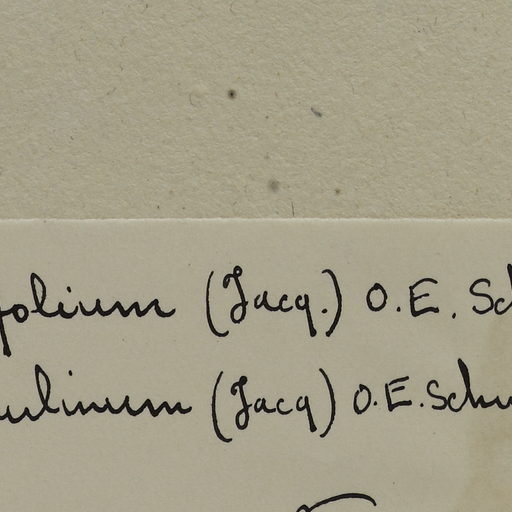 folium (Jacq.) O.E. Sch
ulinum (Jacq) O.E. Schu